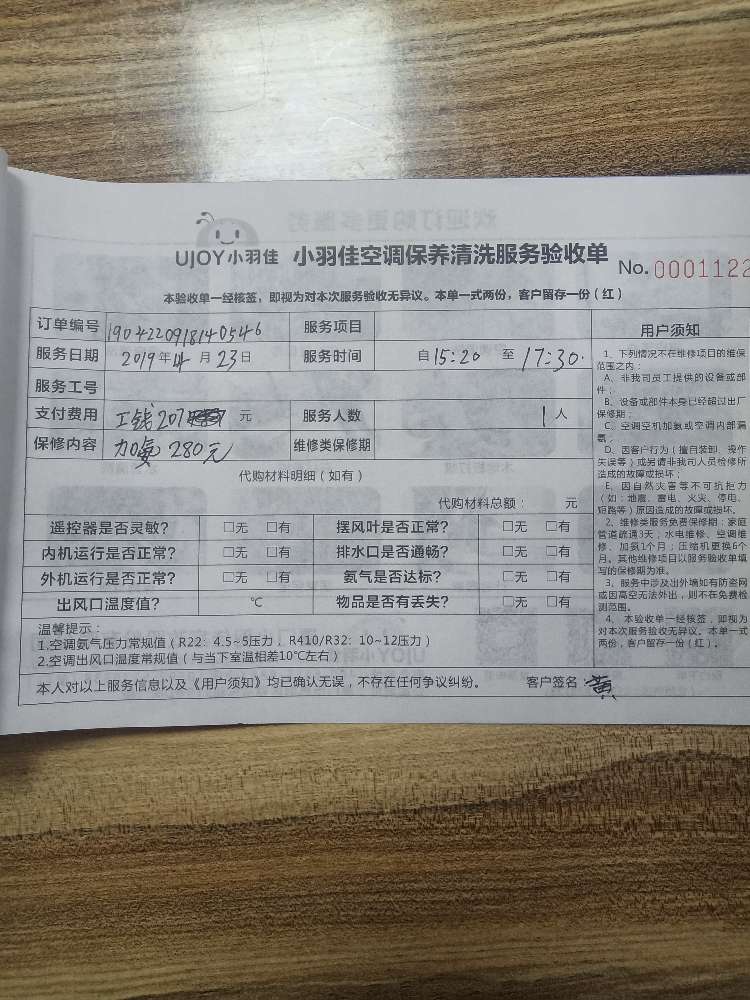 UJOY小羽佳 小羽佳空调保养清洗服务验收单 No.0001122
本验收单一经核签，即视为对本次服务验收无异议。本单一式两份，客户留存一份（红）
订单编号 1904220918140546 服务项目
服务日期 2019年4月23日 服务时间 自15:20 至17:30.
服务工号
支付费用 工钱207 元 服务人数 1人
保修内容 加氨280元 维修类保修期
代购材料明细（如有）
代购材料总额： 元
遥控器是否灵敏? □无 □有 摆风叶是否正常? □无 □有
内机运行是否正常? □无 □有 排水口是否通畅? □无 □有
外机运行是否正常? □无 □有 氨气是否达标? □无 □有
出风口温度值? ℃ 物品是否有丢失? □无 □有
温馨提示：
1.空调氨气压力常规值（R22: 4.5~5压力、R410/R32: 10~12压力）
2.空调出风口温度常规值（与当下室温相差10℃左右）
本人对以上服务信息以及《用户须知》均已确认无误，不存在任何争议纠纷。 客户签名 黄
用户须知
1、下列情况不在维修项目的维保
范围之内：
A、非我司员工提供的设备或部
件；
B、设备或部件本身已经超过出厂
保修期；
C、空调空机加氨或空调内部漏
氨；
D、因客户行为（擅自装卸、操作
失误等）或另请非我司人员检修所
造成的故障或损坏；
E、因自然灾害等不可抗拒力
（如：地震、雷电、火灾、停电、
短路等）原因造成的故障或损坏。
2、维修类服务免费保修期：家庭
管道疏通3天；水电维修、空调维
修、加氨1个月；压缩机更换6个
月。其他维修项目以服务验收单填
写的保修期为准。
3、服务中涉及出外墙如有防盗网
或因高空无法外出，则不在免费检
测范围。
4、本验收单一经核签，即视为
对本次服务验收无异议。本单一式
两份，客户留存一份（红）。